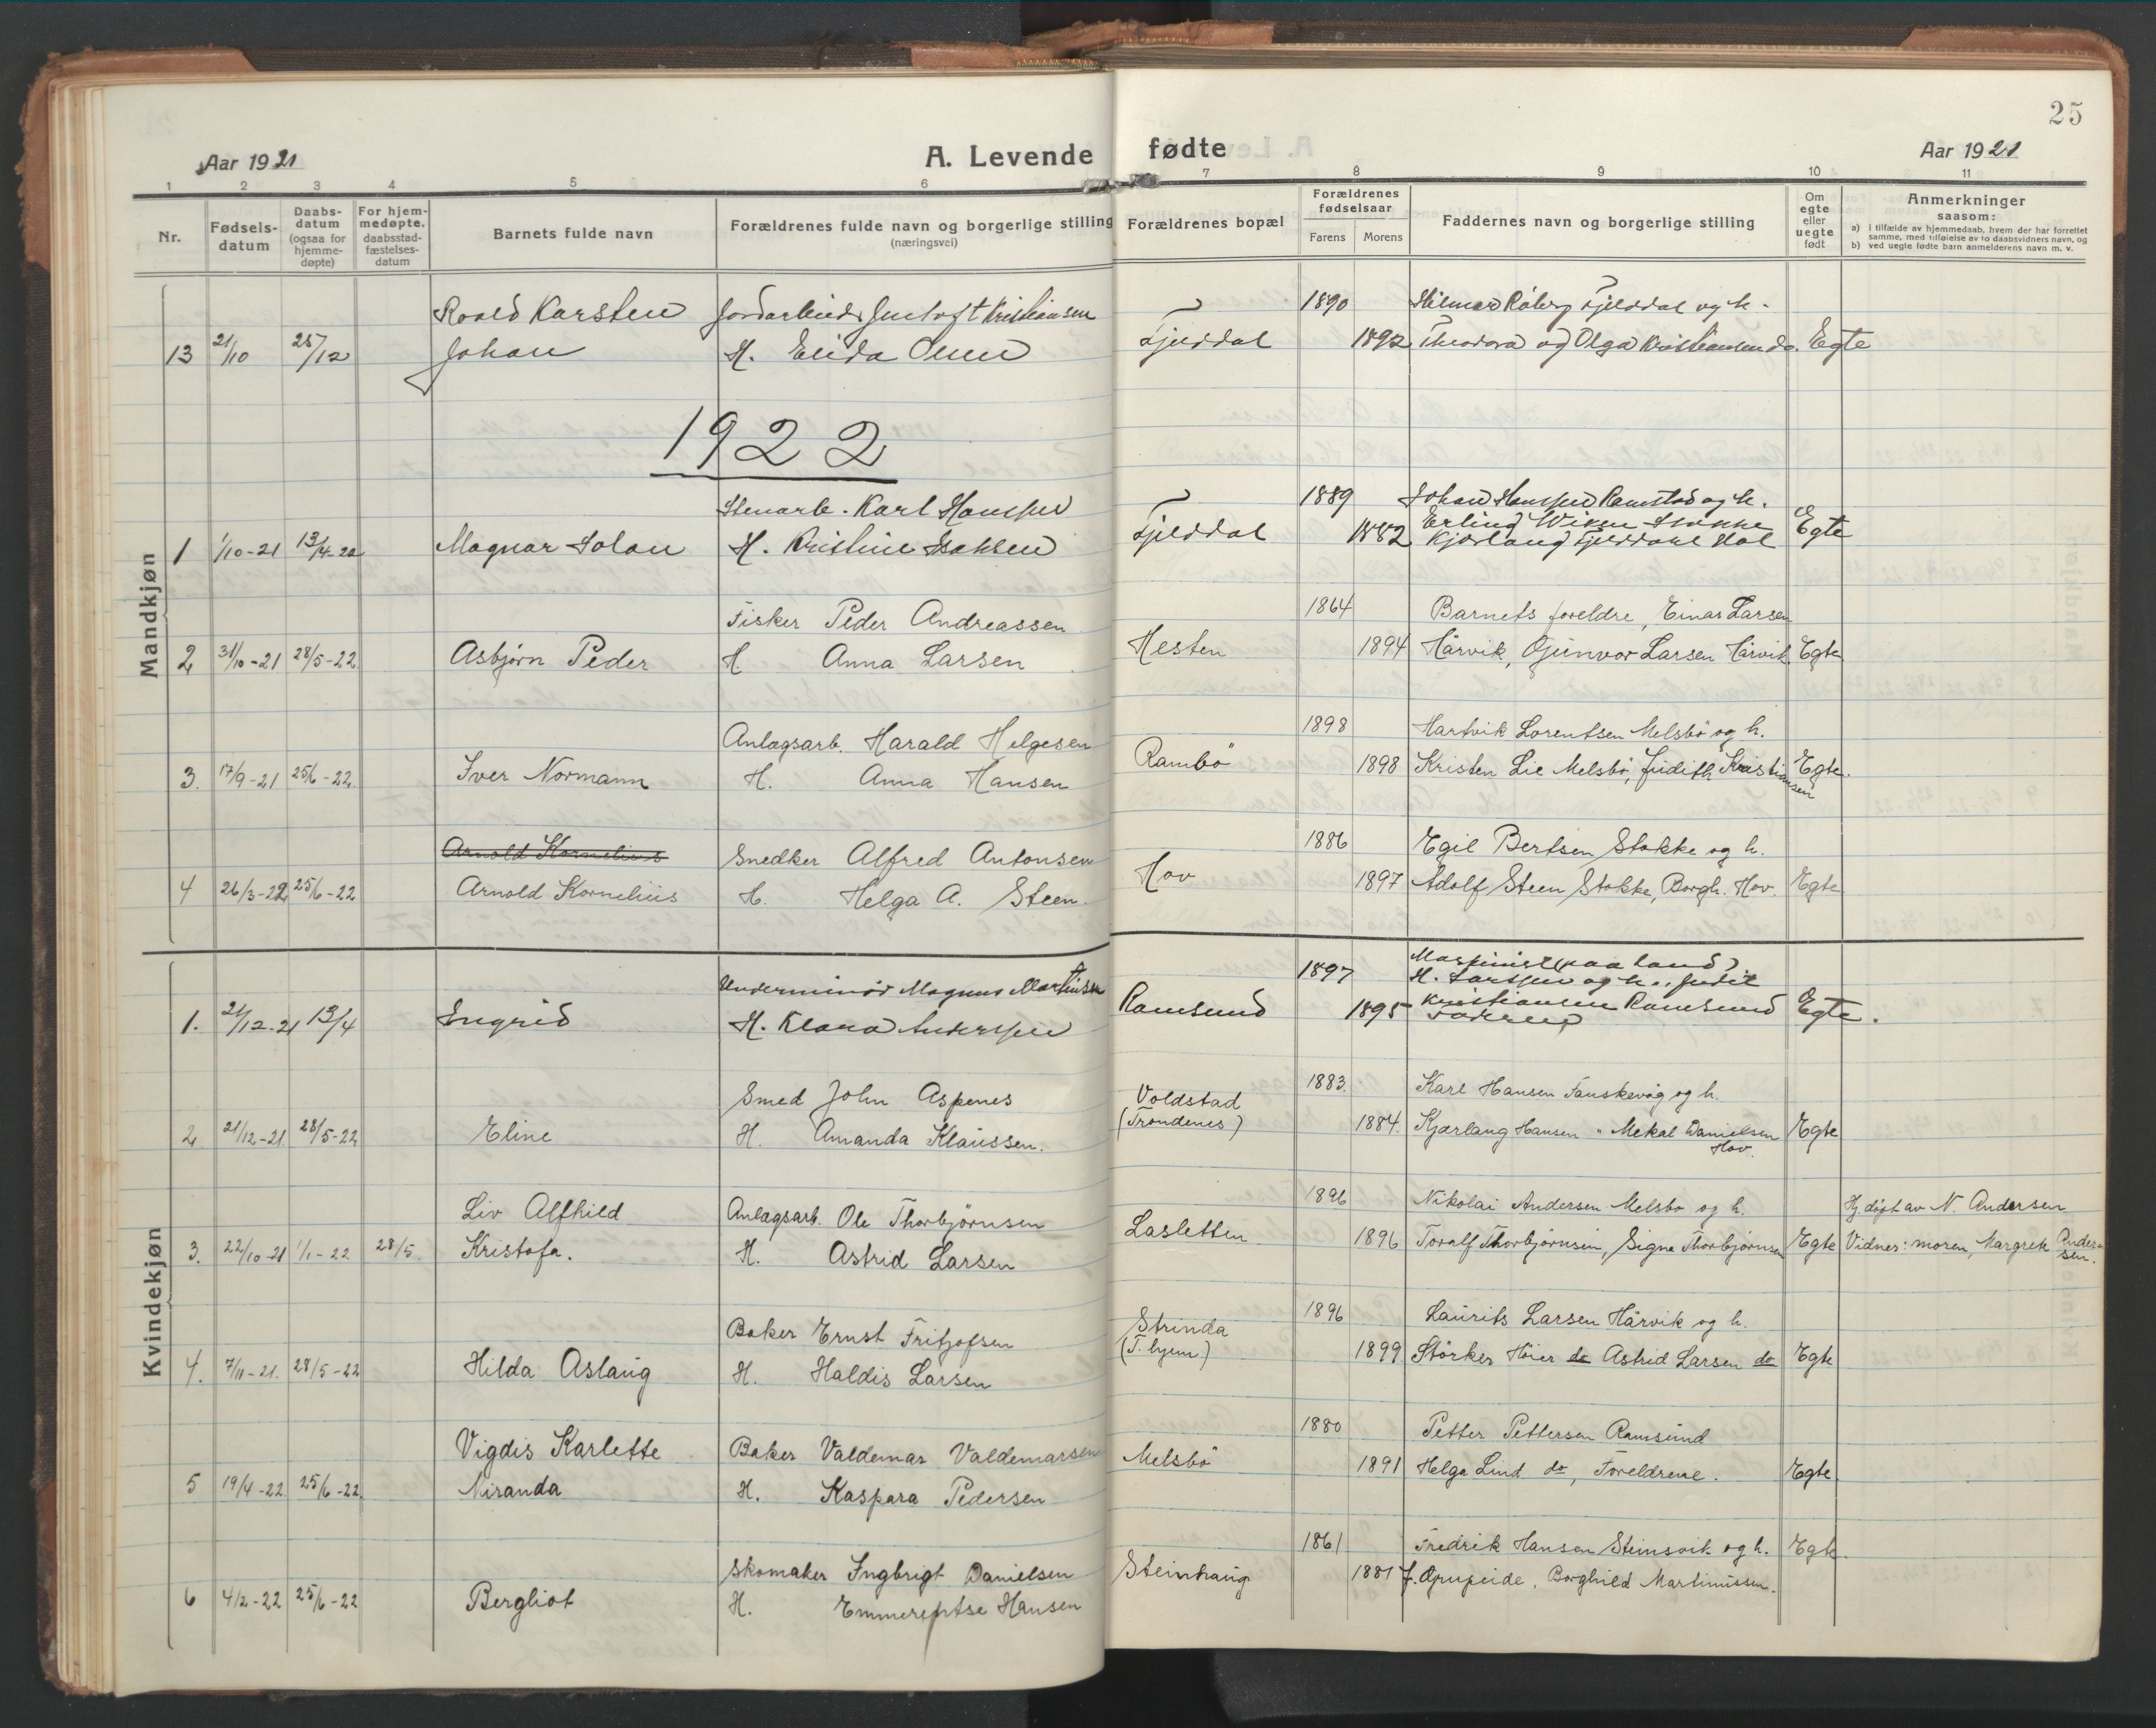 25
Aar 1921
A. Levende fødte
Aar 1921
1 2 3 4 5 6 7 8 9 10 11
Nr.
Fødsels-
datum
Daabs-
datum
(ogsaa for
hjemme-
døpte)
For hjem-
medøpte,
daabsstad-
fæstelses-
datum
Barnets fulde navn
Forældrenes fulde navn og borgerlige stilling
(næringsvei)
Forældrenes bopæl
Forældrenes
fødselsaar
Farens Morens
Faddernes navn og borgerlige stilling
Om
egte
eller
uegte
født
Anmerkninger
saasom:
a) i tilfælde av hjemmedaab, hvem der har forrettet
samme, med tilføielse av to daabsvidners navn, og
b) ved uegte fødte barn anmelderens navn m. v.
Roald Karsten Kristiansen 1890 Fjelddal og h.
13 21/10 25/12 Johan H. Elida Olsen Fjelddal 1892 Theodora og Olga Kristiansen do. Egte
1922
Mandkjøn
Stenarb. Karl Hanssen 1889 Johan Hanssen Ramstad og h.
Erling
1 1/10-21 13/4-22 Magnar Johan H. Kristine Isaksen Fjelddal 1882 Kjærlaug Fjelddal Egte
Fisker Peder Andreassen 1864 Barnets foreldre, Einar Larsen
2 31/10-21 28/5-22 Asbjørn Peder H Anna Larsen Hesten 1894 Hårvik, Gunvor Larsen Hårvik Egte
Anlagsarb. Harald Helgesen 1898 Hartvik Lorentsen Melsbö og h.
3. 17/9-21 25/6-22 Iver Normann H. Anna Hansen Rambö 1898 Kristen Lie Melsbö, Judith Kristiansen Egte.
Arnold Kornelius Snedker Alfred Antonsen 1886 Egil Bertsen Stokke og h.
4 26/3-22 25/6-22 Arnold Kornelius H. Helga A. Steen. Hov 1897 Adolf Steen Stokke, Borgh. Hov. Egte
Kvindekjøn
Underminör Magnus Martinssen 1897 Maskinist (paa land)
H. Larssen og h., Judit
1. 21/12-21 13/4 Ingrid H. Klara Anderssen Ramsund 1895 Kristiansen Ramsund Egte.
Smed John Aspenes Voldstad 1883. Karl Hansen Fauskevåg og h.
2 21/12-21 28/5-22 Eline H. Amanda Klaussen. (Trondenes) 1884. Kjærlaug Hansen " Mekal Danielsen Egte
Hov.
Liv Alfhild Anlagsarb. Ole Thorbjörnsen 1896 Nikolai Andersen Melsbo og h. Hj. döpt av N. Andersen
3. 22/10-21 1/1-22 28/5. Kristofa. H. Astrid Larsen Lasletten 1896 Toralf Thorbjörnsen, Signe Thorbjörnsen Egte Vidner: moren, Margrete Andersen.
Baker Ernst Fritjofsen Strinda 1896 Laurits Larsen Hårvik og h.
4. 7/11-21. 28/5-22 Hilda Aslaug H. Haldis Larsen (T. hjem) 1899 Störker Höier do Astrid Larsen do Egte
Vigdis Karlette Baker Valdemar Valdemarsen 1880 Petter Pettersen Ramsund
5 19/4-22 25/6-22 Miranda H. Kaspara Pedersen Melsbö 1891 Helga Lind do, Foreldrene. Egte
Skomaker Ingbrigt Danielsen 1861 Fredrik Hansen Steinsvik og h. Egte
6 4/2-22 25/6-22 Bergliot H. Hansen Steinhaug 1881 Borghild Martinussen.